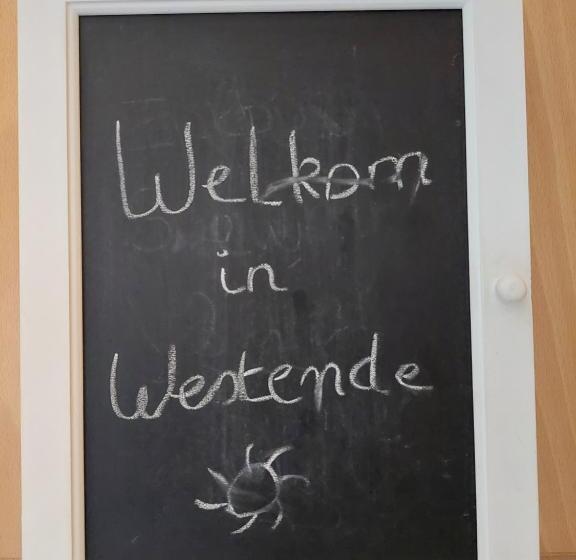 Welkom
in
Westende